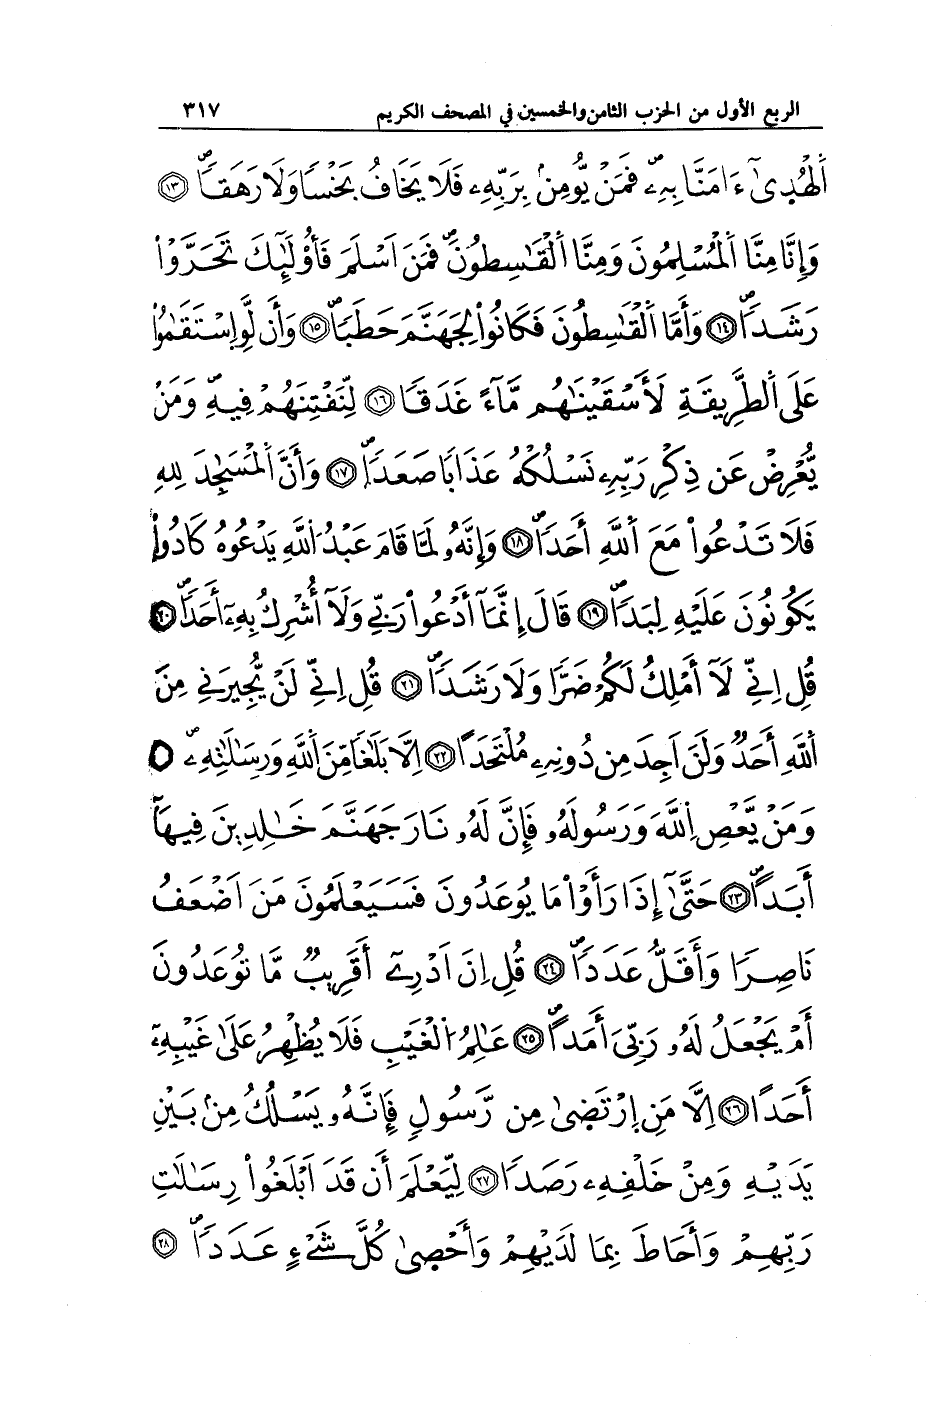 الربع الأول من الحزب الثامن والخمسين في المصحف الكريم ٣١٧
اَ۬لْهُد۪يٰٓ ءَامَنَّا بِهِۦۖ فَمَنْ يُّومِنۢ بِرَبِّهِۦ فَلَا يَخَافُ بَخْساٗ وَلَا رَهَقاٗۖ ۝١٣
وَإِنَّا مِنَّا اَ۬لْمُسْلِمُونَ وَمِنَّا اَ۬لْقَٰسِطُونَۖ فَمَنَ اَسْلَمَ فَأُوْلَٰٓئِكَ تَحَرَّوْاْ
رَشَداٗۖ ۝١٤ وَأَمَّا اَ۬لْقَٰسِطُونَ فَكَانُواْ لِجَهَنَّمَ حَطَباٗۖ ۝١٥ وَأَن لَّوِ اِ۪سْتَقَٰمُواْ
عَلَى اَ۬لطَّرِيقَةِ لَأَسْقَيْنَٰهُم مَّآءً غَدَقاٗ ۝١٦ لِّنَفْتِنَهُمْ فِيهِۖ وَمَنْ
يُّعْرِضْ عَن ذِكْرِ رَبِّهِۦ نَسْلُكْهُ عَذَاباٗ صَعَداٗۖ ۝١٧ وَأَنَّ اَ۬لْمَسَٰجِدَ لِلهِ
فَلَا تَدْعُواْ مَعَ اَ۬للَّهِ أَحَداٗۖ ۝١٨ وَإِنَّهُۥ لَمَّا قَامَ عَبْدُ اُ۬للَّهِ يَدْعُوهُ كَادُواْ
يَكُونُونَ عَلَيْهِ لِبَداٗۖ ۝١٩ قَالَ إِنَّمَآ أَدْعُواْ رَبِّي وَلَآ أُشْرِكُ بِهِۦٓ أَحَداٗۖ ۝٢٠
قُلِ اِنِّي لَآ أَمْلِكُ لَكُمْ ضَرّاٗ وَلَا رَشَداٗۖ ۝٢١ قُلِ اِنِّي لَنْ يُّجِيرَنِي مِنَ
اَ۬للَّهِ أَحَدٞ وَلَنَ اَجِدَ مِن دُونِهِۦ مُلْتَحَداً ۝٢٢ اِلَّا بَلَٰغاٗ مِّنَ اَ۬للَّهِ وَرِسَٰلَٰتِهِۦۖ
وَمَنْ يَّعْصِ اِ۬للَّهَ وَرَسُولَهُۥ فَإِنَّ لَهُۥ نَارَ جَهَنَّمَ خَٰلِدِينَ فِيهَآ
أَبَداًۖ ۝٢٣ حَتَّىٰٓ إِذَا رَأَوْاْ مَا يُوعَدُونَ فَسَيَعْلَمُونَ مَنَ اَضْعَفُ
نَاصِراٗ وَأَقَلُّ عَدَداٗۖ ۝٢٤ قُلِ اِنَ اَدْرِےٓ أَقَرِيبٞ مَّا تُوعَدُونَ
أَمْ يَجْعَلُ لَهُۥ رَبِّيَ أَمَداًۖ ۝٢٥ عَٰلِمُ اُ۬لْغَيْبِ فَلَا يُظْهِرُ عَلَىٰ غَيْبِهِۦٓ
أَحَداً ۝٢٦ اِلَّا مَنِ اِ۪رْتَضۭيٰ مِن رَّسُولٖ فَإِنَّهُۥ يَسْلُكُ مِنۢ بَيْنِ
يَدَيْهِ وَمِنْ خَلْفِهِۦ رَصَداٗ ۝٢٧ لِّيَعْلَمَ أَن قَدَ اَبْلَغُواْ رِسَٰلَٰتِ
رَبِّهِمْ وَأَحَاطَ بِمَا لَدَيْهِمْ وَأَحْصۭيٰ كُلَّ شَےْءٍ عَدَداٗۖ ۝٢٨